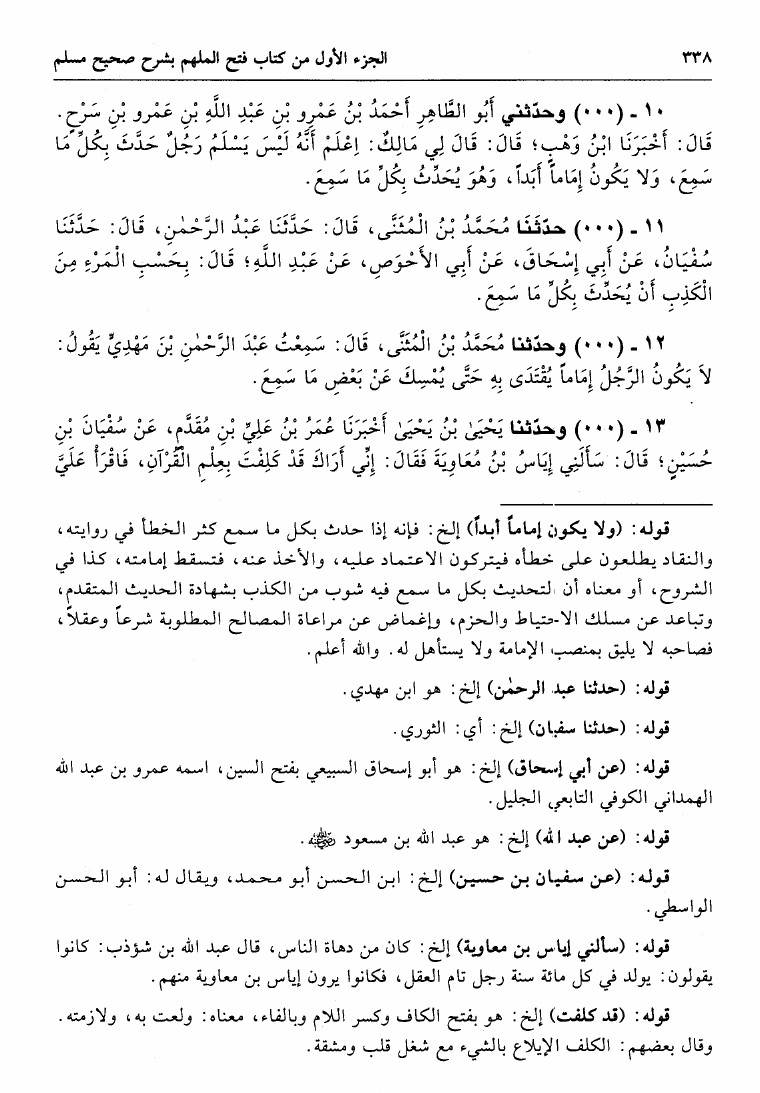 ٣٣٨ الجزء الأول من كتاب فتح الملهم بشرح صحيح مسلم
١٠ ـ (٠٠٠) وحدّثني أَبُو الطَّاهِرِ أَحْمَدُ بْنُ عَمْرِو بْنِ عَبْدِ اللَّهِ بْنِ عَمْرِو بْنِ سَرْحٍ.
قَالَ: أَخْبَرَنَا ابْنُ وَهْبٍ؛ قَالَ: قَالَ لِي مَالِكٌ: اِعْلَمْ أَنَّهُ لَيْسَ يَسْلَمُ رَجُلٌ حَدَّثَ بِكُلِّ مَا
سَمِعَ، وَلَا يَكُونُ إِمَاماً أَبَداً، وَهُوَ يُحَدِّثُ بِكُلِّ مَا سَمِعَ.
١١ ـ (٠٠٠) حدّثَنَا مُحَمَّدُ بْنُ الْمُثَنَّى، قَالَ: حَدَّثَنَا عَبْدُ الرَّحْمٰنِ، قَالَ: حَدَّثَنَا
سُفْيَانُ، عَنْ أَبِي إِسْحَاقَ، عَنْ أَبِي الأَحْوَصِ، عَنْ عَبْدِ اللَّهِ؛ قَالَ: بِحَسْبِ الْمَرْءِ مِنَ
الْكَذِبِ أَنْ يُحَدِّثَ بِكُلِّ مَا سَمِعَ.
١٢ ـ (٠٠٠) وحدّثنا مُحَمَّدُ بْنُ الْمُثَنَّى، قَالَ: سَمِعْتُ عَبْدَ الرَّحْمٰنِ بْنَ مَهْدِيٍّ يَقُولُ:
لاَ يَكُونُ الرَّجُلُ إِمَاماً يُقْتَدَى بِهِ حَتَّى يُمْسِكَ عَنْ بَعْضِ مَا سَمِعَ.
١٣ ـ (٠٠٠) وحدّثنا يَحْيَىٰ بْنُ يَحْيَىٰ أَخْبَرَنَا عُمَرُ بْنُ عَلِيِّ بْنِ مُقَدَّمٍ، عَنْ سُفْيَانَ بْنِ
حُسَيْنٍ؛ قَالَ: سَأَلَنِي إِيَاسُ بْنُ مُعَاوِيَةَ فَقَالَ: إِنِّي أَرَاكَ قَدْ كَلِفْتَ بِعِلْمِ الْقُرْآنِ، فَاقْرَأْ عَلَيَّ
قوله: (ولا يكون إماماً أبداً) إلخ: فإنه إذا حدث بكل ما سمع كثر الخطأ في روايته،
والنقاد يطلعون على خطأه فيتركون الاعتماد عليه، والأخذ عنه، فتسقط إمامته، كذا في
الشروح، أو معناه أن التحديث بكل ما سمع فيه شوب من الكذب بشهادة الحديث المتقدم،
وتباعد عن مسلك الاحتياط والحزم، وإغماض عن مراعاة المصالح المطلوبة شرعاً وعقلاً،
فصاحبه لا يليق بمنصب الإمامة ولا يستأهل له. والله أعلم.
قوله: (حدثنا عبد الرحمٰن) إلخ: هو ابن مهدي.
قوله: (حدثنا سفيان) إلخ: أي: الثوري.
قوله: (عن أبي إسحاق) إلخ: هو أبو إسحاق السبيعي بفتح السين، اسمه عمرو بن عبد الله
الهمداني الكوفي التابعي الجليل.
قوله: (عن عبد الله) إلخ: هو عبد الله بن مسعود رضي الله عنه.
قوله: (عن سفيان بن حسين) إلخ: ابن الحسن أبو محمد، ويقال له: أبو الحسن
الواسطي.
قوله: (سألني إياس بن معاوية) إلخ: كان من دهاة الناس، قال عبد الله بن شؤذب: كانوا
يقولون: يولد في كل مائة سنة رجل تام العقل، فكانوا يرون إياس بن معاوية منهم.
قوله: (قد كلفت) إلخ: هو بفتح الكاف وكسر اللام وبالفاء، معناه: ولعت به، ولازمته.
وقال بعضهم: الكلف الإيلاع بالشيء مع شغل قلب ومشقة.